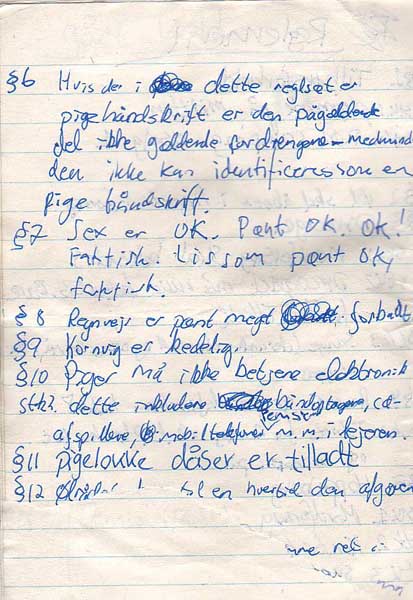 §6 Hvis der i dette reglsæt er
pigehåndskrift er den pågældende
del ikke gældende for drengene - medmind
den ikke kan identificeres som en
pige håndskrift.
§7 Sex er OK. Pænt OK. OK!
Faktisk. Lissom pænt OK,
faktisk.
§8 Regnvejr er pænt meget forbudt
§9 Kornvig er kedelig.
§10 Piger må ikke betjene elektronik
stk2. dette inkludere båndoptagere, cd-
afspillere, mobiltelefoner femst m.m. i lejren.
§11 pigelokke dåser er tilladt
§12 til en hvertid den afgøren